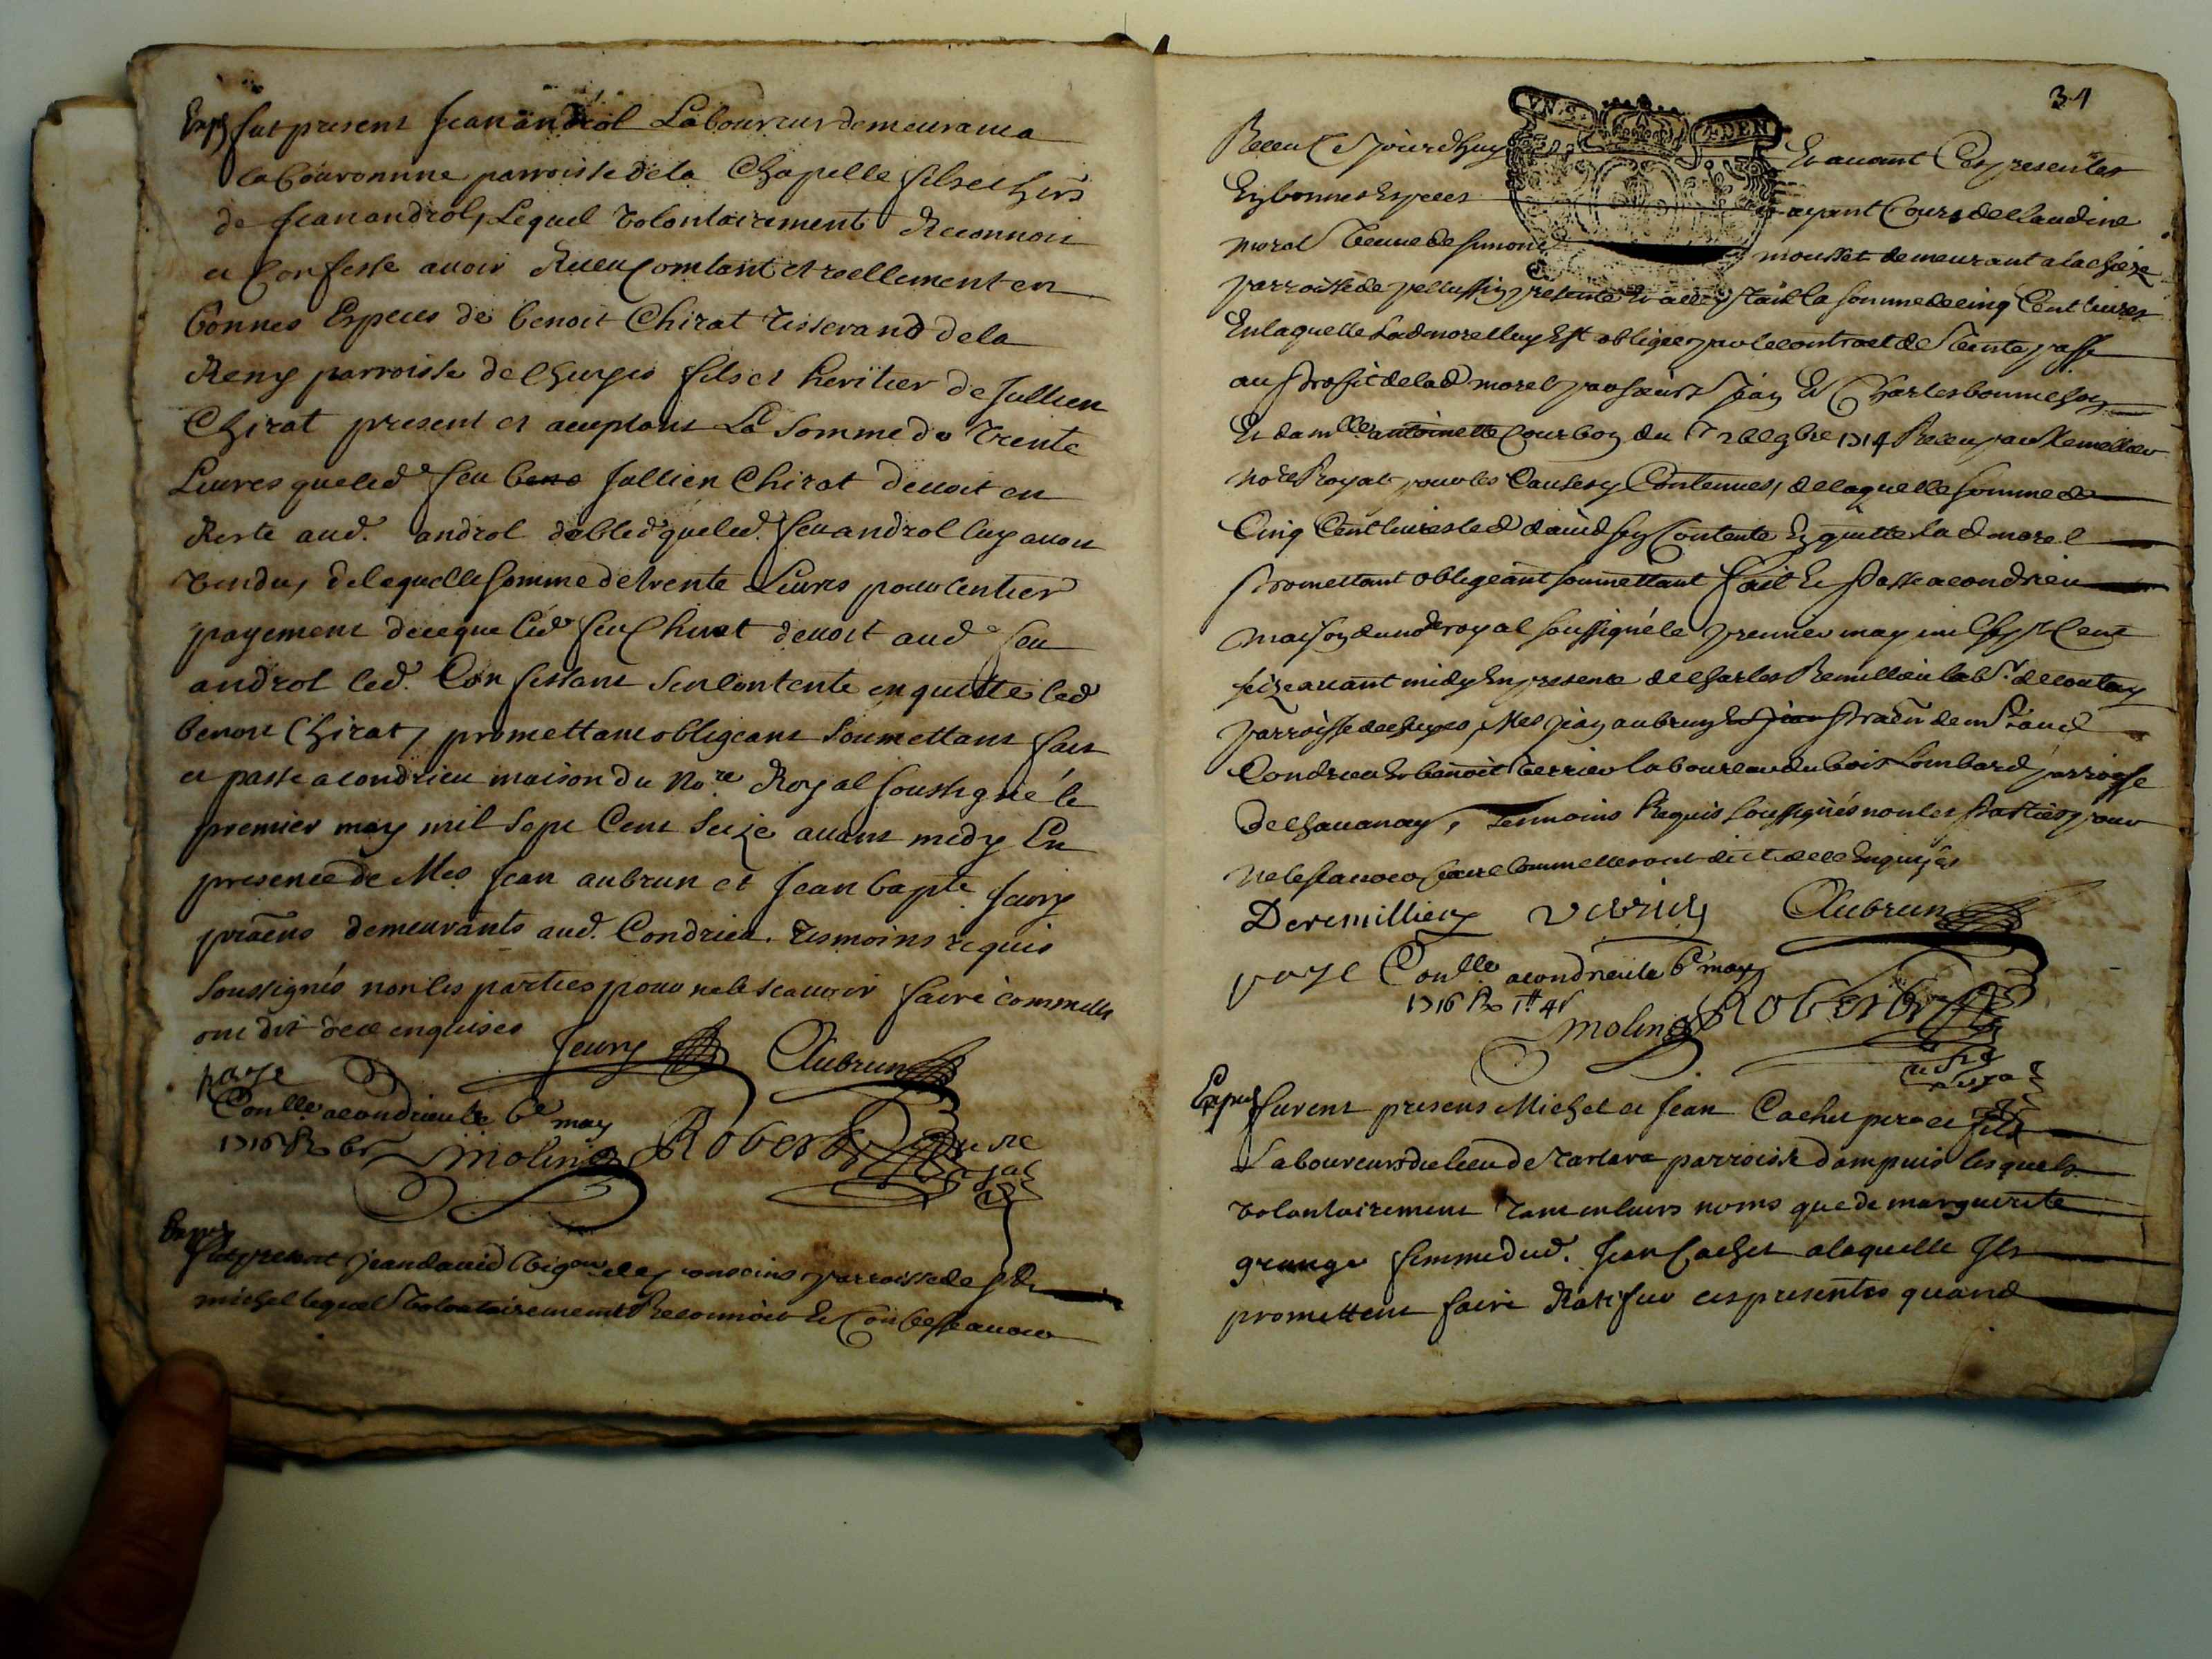 Exp fut present Jean androl Laboureur demeurant a
la Couronnne parroisse de la Chapelle fils et hers
de Jean androl, Lequel volontairement Reconnoit
et Confesse avoir Receu Comtant et reellement en
bonnes Especes de benoit Chirat tisserand de la
Remy parroisse de Chuyes fils et heritier de Jullien
Chirat present et aceptant La Somme de trente
Livres que led feu beno Jullien Chirat devoit en
Reste aud. androl de bled que led. feu androl luy avoit
vendu, de laquelle somme de trente Livres pour lentier
payement de ce que led feu Chirat devoit aud feu
androl led. Confessant sen contente en quitte led
benoit Chirat, promettant obligeant Soumettant fait
et passé a condrieu maison du No.re Royal soussigné le
premier may mil Sept Cent Seize avant midy En
presence de Mes Jean aubrun et Jean bapte Jeury
pratiens demeurants aud. Condrieu. tesmoins requis
Soussignés non les parties pour ne le scauoir faire comm elles
ont dit de ce enquises
Jeury Aubrun
paye
Conllé a condrieu le 6e may
1716 R 6s
molin Robert
Expe
fut present Jean david vig parroisse de St
michel lequel volontairement Reconnoit et Confesse avoir
31
Receu Ce Jourdhuy Et avant Ces presentes
En bonnes Especes ayant Cours de Claudine
morel veuve de simon mousset demeurant a la chieze
parroisse de pellussin presente Et acceptant la somme de cinq Cent livres
En laquelle Lad morel luy Est obligée par le contract de vente passé
au proffit de lad morel par sieurs Jean Et Charles bonnefoy
Et damlle antoinette Courbon du 17 1714 Receu par Remillieu
nore Royal pour les Causes y Contenues, de laquelle somme de
Cinq Cent livres led david sen Contente En quitte lad morel
promettant obligeant soumettant fait Et passé a condrieu
maison du nore royal soussigné le premier may mil Sept Cent
seize avant midy En presence de Charles Remillieu labr. de
parroisse de chuyes, Mes Jean aubrun et Jean pratien de md aud
Condrieu Et benoit verrier laboureur du bois Lombard parroisse
de Chavanay, tesmoins Requis soussignés non les parties pour
ne le scavoir faire comm elles ont dit de ce Enquises
Deremillieu verrier Aubrun
paye Conllé a condrieu le 6e may
1716 R 1tt 4s
molin Robert
Exped furent presens Michel et Jean Cachet pere et fils
Laboureurs du lieu de tartara parroisse dampuis lesquels
volontairement tant en leurs noms que de marguerite
grange femme dud. Jean Cachet a laquelle Ils
promettent faire Ratifier ces presentes quand